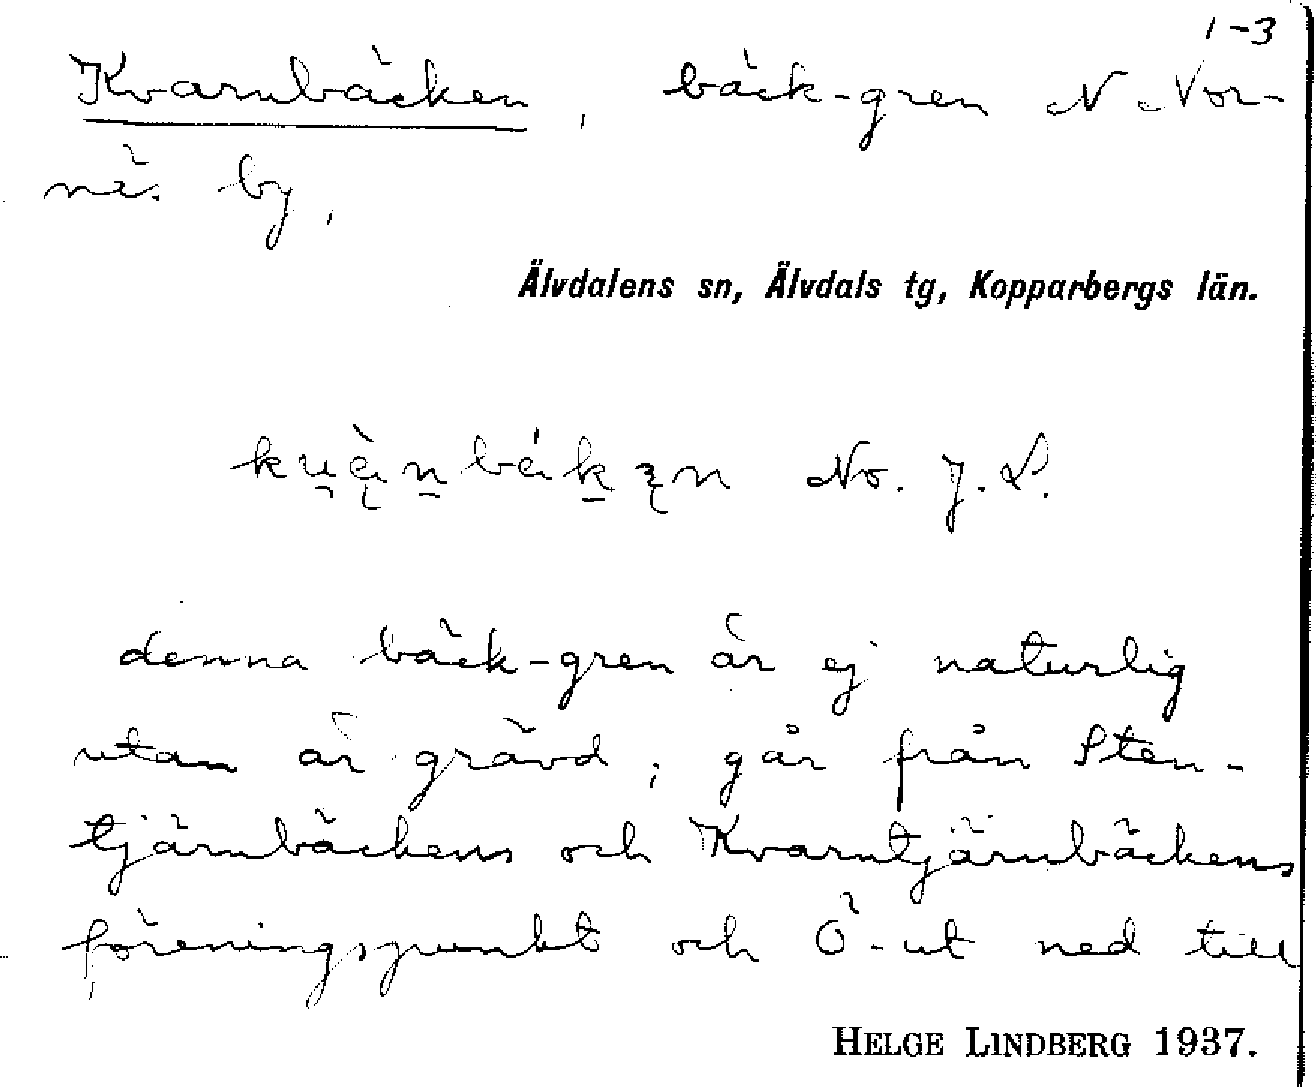 1-3
Kvarnbäcken, bäck-gren N Vor-
näs by,
Älvdalens sn, Älvdals tg, Kopparbergs län.
No. J. L.
denna bäck-gren är ej naturlig
utan är grävd; går från Sten-
tjärnbäckens och Kvarntjärnbäckens
föreningspunkt och Ö-ut ned till
HELGE LINDBERG 1937.